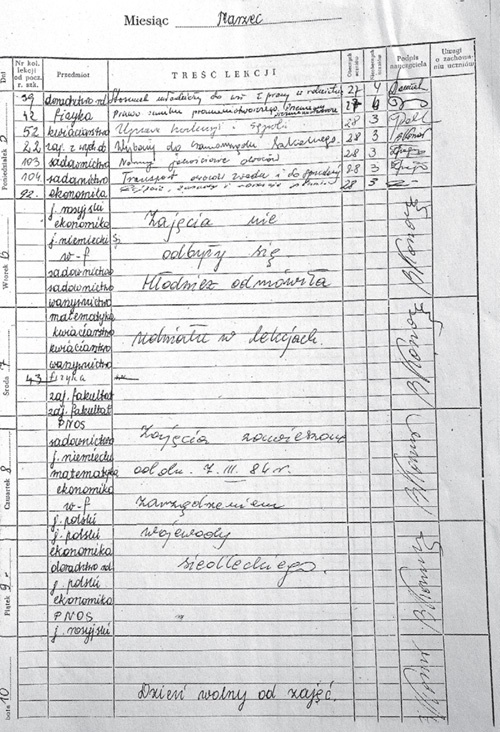 Miesiąc Marzec
Dni
Nr kol. lekcji od pocz. r. szk.
Przedmiot
TREŚĆ LEKCJI
Obecnych uczniów
Nieobecnych uczniów
Podpis nauczyciela
Uwagi o zachowaniu uczniów
Poniedziałek 5
39 doradztwo rol. Stosunek młodzieży do wsi i pracy w rolnictwie 27 4
42 fizyka Prawo 27 4
52 kwiaciarstwo Uprawa 28 3
22 zaj. z wych. ob. Wybory do Samorządu Szkolnego. 28 3
103 sadownictwo Normy jakościowe owoców 28 3
104 sadownictwo Transport owoców 28 3
92 ekonomika 28 3
Wtorek 6
j. rosyjski
ekonomika Zajęcia nie
j. niemiecki
w-f odbyły się
sadownictwo
sadownictwo Młodzież odmówiła
warzywnictwo
Środa 7
matematyka
kwiaciarstwo udziału w lekcjach.
kwiaciarstwo
warzywnictwo
43 fizyka
zaj. fakultat
zaj. fakultat
Czwartek 8
PNOS
sadownictwo Zajęcia zawieszone
j. niemiecki
matematyka od dn. 7. III. 84 r.
ekonomika
w-f zarządzeniem
j. polski
Piątek 9
j. polski wojewody
ekonomika
doradztwo rol siedleckiego.
j. polski
ekonomika
PNOS
j. rosyjski
Sobota 10
Dzień wolny od zajęć.